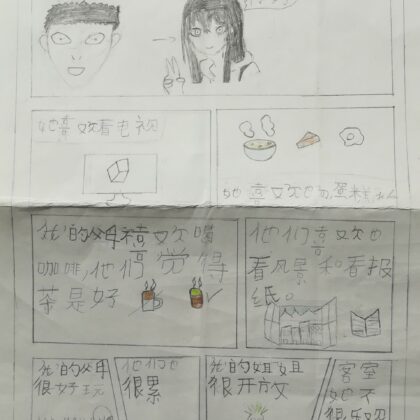 她喜欢看电视
她喜欢
我的父母喜欢喝
咖啡,他们觉得
茶是好
他们喜欢也
看风景和看报
纸。
我的父母
很好玩
他们也
很累
我的姐姐
很开放
客室
她不
很乐